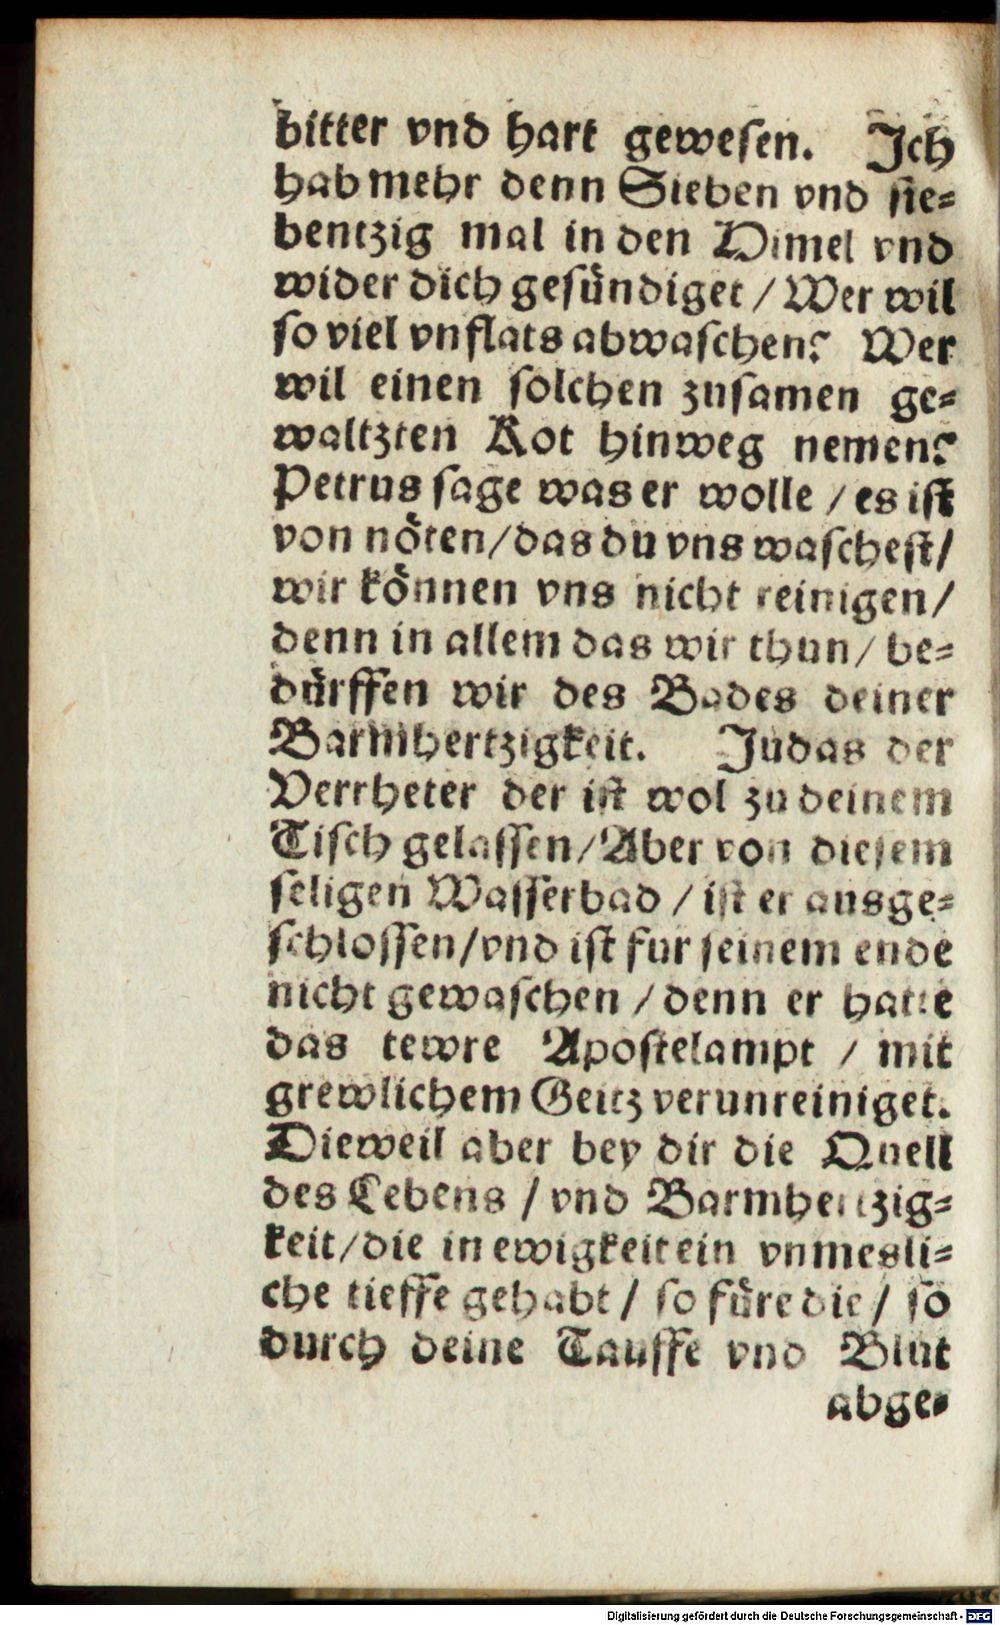 bitter vnd hart gewesen. Ich
hab mehr denn Sieben vnd sie-
bentzig mal in den Himel vnd
wider dich gesündiget / Wer wil
so viel vnflats abwaschen? Wer
wil einen solchen zusamen ge-
waltzten Kot hinweg nemen?
Petrus sage was er wolle / es ist
von nöten/das du vns waschest/
wir können vns nicht reinigen/
denn in allem das wir thun/ be-
dürffen wir des Bades deiner
Barmhertzigkeit. Judas der
Verrheter der ist wol zu deinem
Tisch gelassen/Aber von diesem
seligen Wasserbad / ist er ausge-
schlossen/vnd ist fur seinem ende
nicht gewaschen / denn er hatte
das tewre Apostelampt / mit
grewlichem Geitz verunreiniget.
Dieweil aber bey dir die Quell
des Lebens / vnd Barmhertzig-
keit/die in ewigkeit ein vnmesli-
che tieffe gehabt / so füre die / so
durch deine Tauffe vnd Blut
abge-
Digitalisierung gefördert durch die Deutsche Forschungsgemeinschaft - DFG